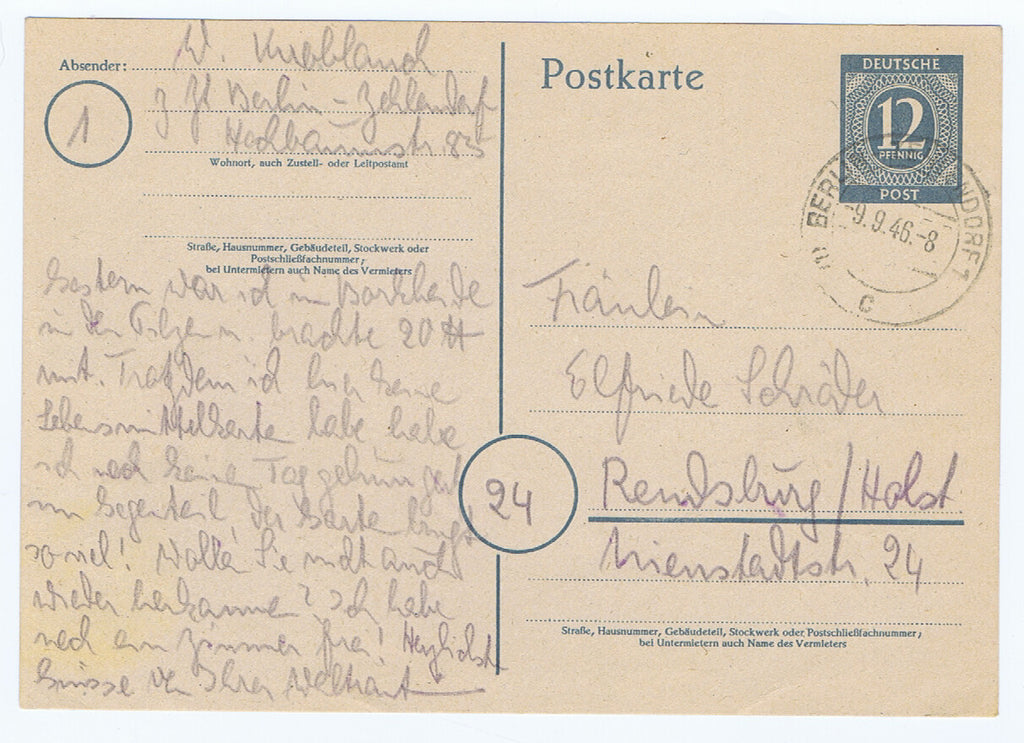 Absender: W. Knobland
1
z Zt Berlin-Zehlendorf
Hochbaumstr. 85
Wohnort, auch Zustell- oder Leitpostamt
Straße, Hausnummer, Gebäudeteil, Stockwerk oder
Postschließfachnummer;
bei Untermietern auch Name des Vermieters
Gestern war ich in Borkheide
in den Pilzen u. brachte 20 ℔
mit. Trotzdem ich hier keine
Lebensmittelkarte habe habe
ich noch keinen Tag gehungert
im Gegenteil, der Garten bringt
so viel! Wollen Sie nicht auch
wieder herkommen? Ich habe
noch ein Zimmer frei! Herzlichste
Grüsse von Ihrer Waltraut
Postkarte
DEUTSCHE
12
PFENNIG
POST
BERL NDORF 1
-9.9.46.-8
c
Fräulein
Elfriede Schröder
24
Rendsburg/Holst
Nienstadtstr. 24
Straße, Hausnummer, Gebäudeteil, Stockwerk oder Postschließfachnummer;
bei Untermietern auch Name des Vermieters